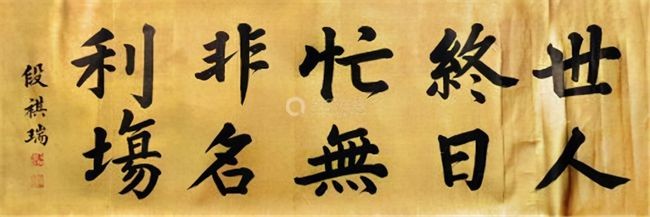 世人
終日
忙無
非名
利場
段祺瑞